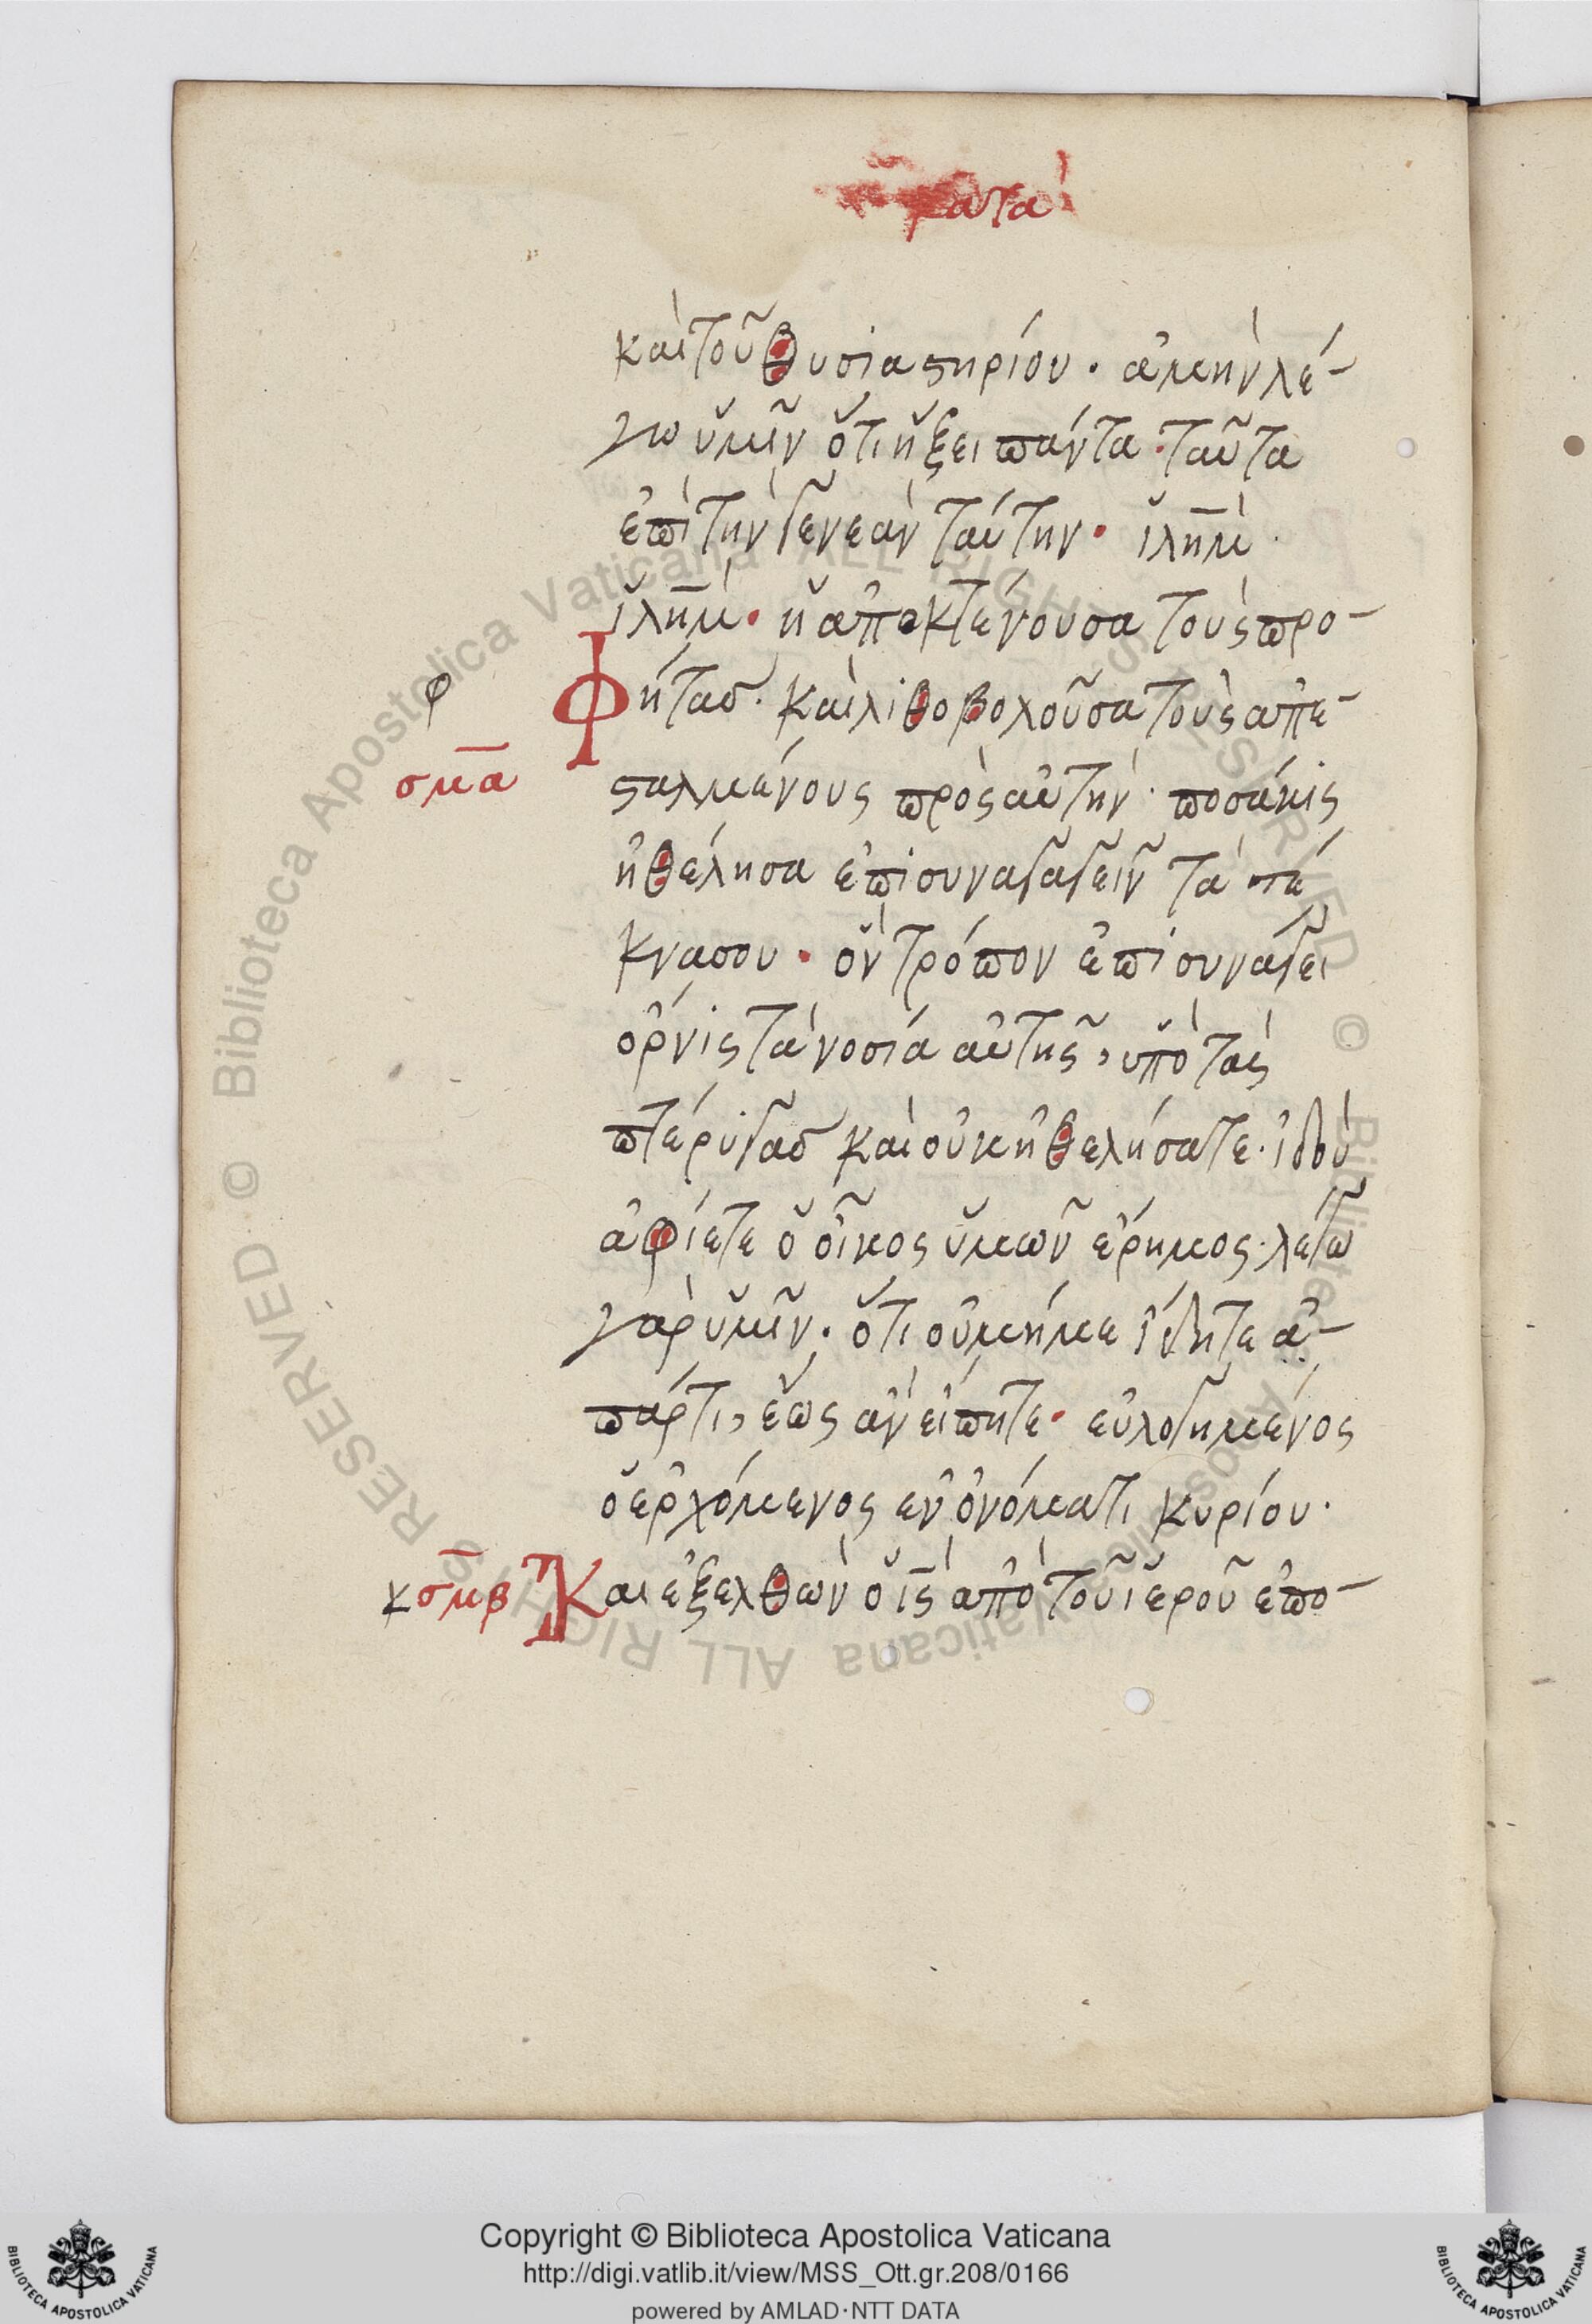 κατὰ
καὶ τοῦ θυσιαστηρίου. ἀμὴν λέ-
γω ὑμῖν ὅτι ἥξει πάντα· ταῦτα
ἐπὶ τὴν γενεὰν ταύτην· ἱλημ̄.
ἱλημ̄· ἡ ἀποκτένουσα τοὺς προ-
φ
φήτας. καὶ λιθοβολοῦσα τοὺς ἀπε-
σμα
σταλμένους πρὸς αὐτήν. ποσάκις
ἠθέλησα ἐπισυναγαγεῖν τὰ τέ
κνα σου· ὃν τρόπον ἐπισυνάγει
ὄρνις τὰ νοσία αὐτῆς, ὑπὸ τὰς
πτέρυγας καὶ οὐκ ἠθελήσατε. ἰδοὺ
ἀφίετε ὁ οἶκος ὑμῶν ἔρημος. λέγω
γὰρ ὑμῖν. ὅτι οὐ μή με ἴδητε ἀ-
πάρτι, ἕως ἂν εἴπητε· εὐλογημένος
ὁ ἐρχόμενος ἐν ὀνόματι κυρίου.
κ σμβ Και ἐξελθὼν ὁ ις̄ ἀπὸ τοῦ ἱεροῦ ἐπο-
Copyright © Biblioteca Apostolica Vaticana
http://digi.vatlib.it/view/MSS_Ott.gr.208/0166
powered by AMLAD·NTT DATA
BIBLIOTECA APOSTOLICA VATICANA
BIBLIOTECA APOSTOLICA VATICANA